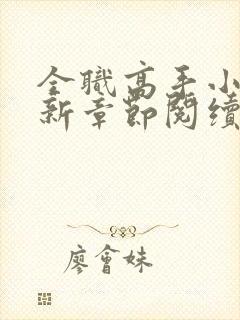 全職高手小
新章節閱續
廖會妹